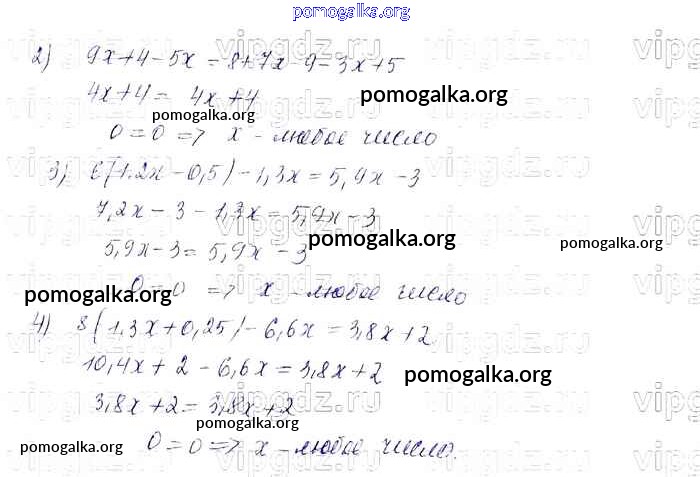 pomogalka.org
2) 9x+4-5x = 8+7x-9-3x+5
4x+4 = 4x+4
pomogalka.org
pomogalka.org
0=0 => x - любое число
3) 6(1.2x-0,5)-1,3x=5,9x-3
7,2x-3-1,3x=5,9x-3
pomogalka.org
pomogalka.org
5,9x-3=5,9x-3
0=0 => x - любое число
pomogalka.org
4) 8(1.3x+0,25)-6,6x=3,8x+2
10,4x+2-6,6x=3,8x+2
pomogalka.org
3,8x+2=3,8x+2
pomogalka.org
pomogalka.org
0=0 => x - любое число.